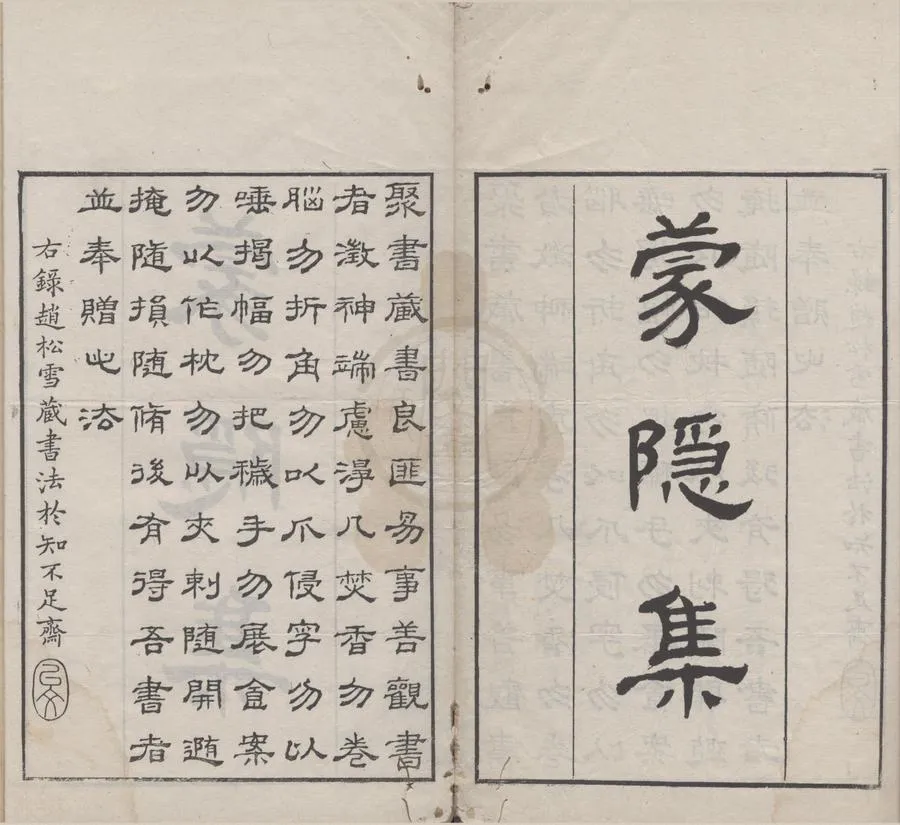 蒙隐集
聚書藏書良匪易事善觀書
者澂神端慮淨几焚香勿卷
腦勿折角勿以爪侵字勿以
唾揭幅勿把穢手勿展食案
勿以作枕勿以夾刺隨開遀
掩隨損隨脩後有得吾書者
並奉贈之法
右錄趙松雪藏書法於知不足齋
㠯文